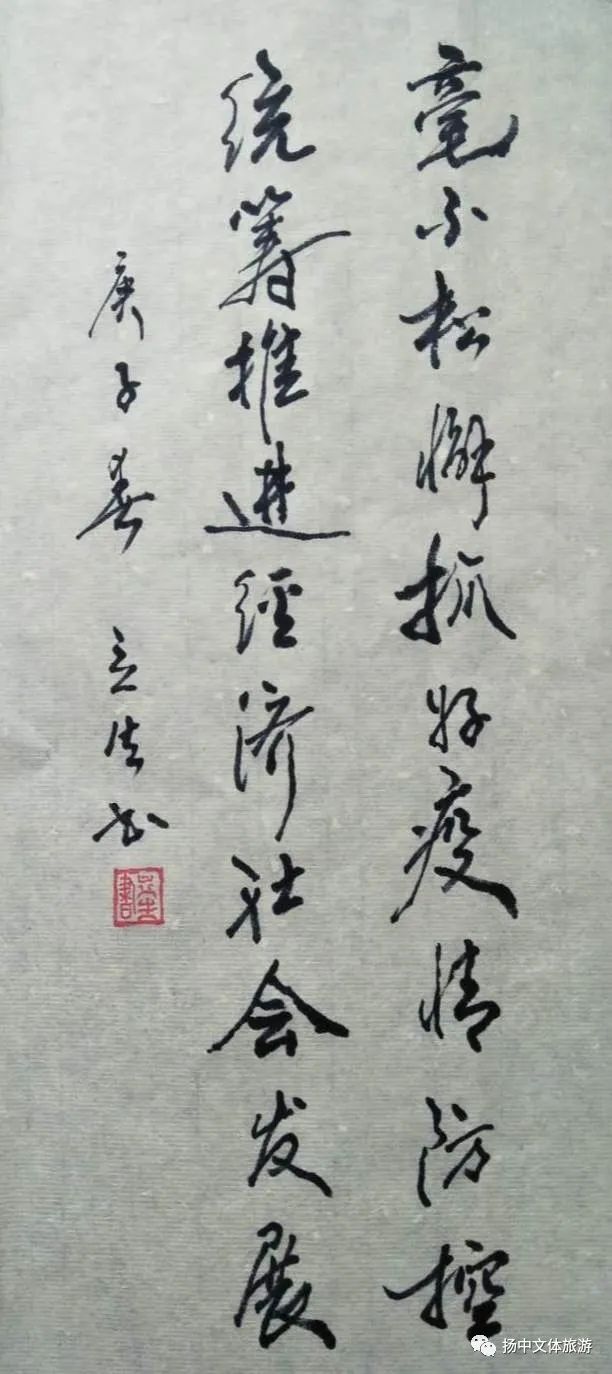 毫不松懈抓好疫情防控
统筹推进经济社会发展
庚子春 立生书
扬中文体旅游